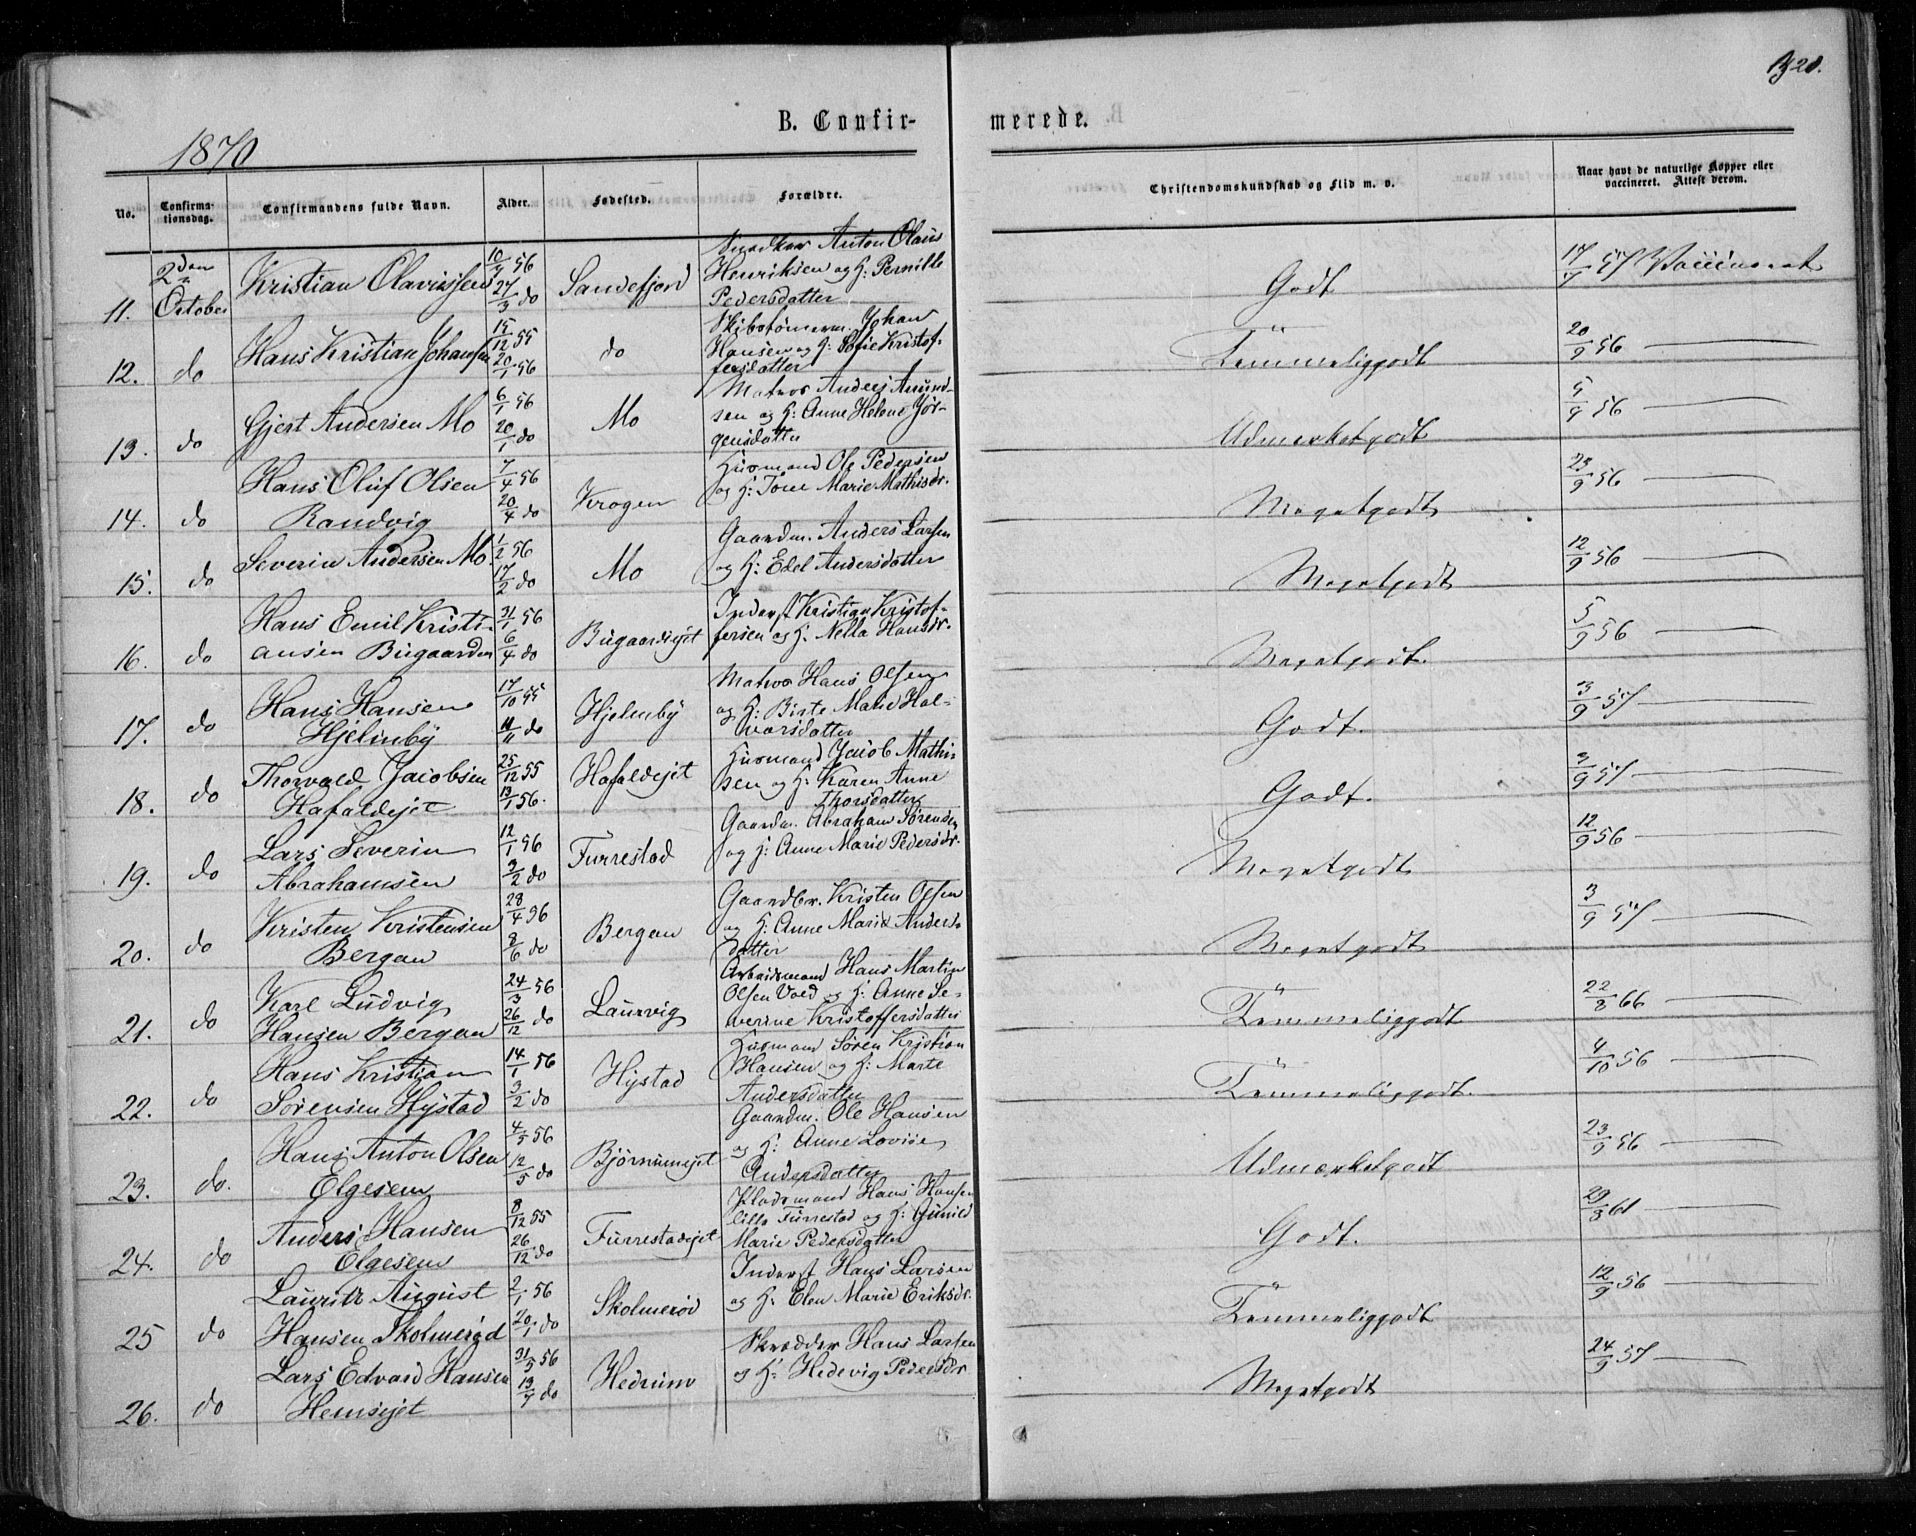 328.
B. Confir-
merede.
1870
No.
Confirma-
tionsdag.
Confirmandens fulde Navn.
Alder.
Fødested.
Forældre.
Christendomskundskab og Flid m. v.
Naar havt de naturlige Kopper eller
vaccineret. Attest derom.
11. 2den October Kristian Olaviussen 10/3 56 27/3 do Sandefjord Snedker Anton Olaus
Henriksen og H: Pernille
Pedersdatter Godt 17/7 57 Vaccineret
12. do Hans Kristian Johansen 15/12 55 20/1 56 do Skibstømerm. Johan
Hansen og H: Sofie Kristof-
fersdatter Temmeliggodt 20/9 56 —
13. do Gjert Andersen Mo 6/1 56 20/1 do Mo Matros Anders Amund-
sen og H: Anne Helene Jør-
gensdatter Udmerketgodt 5/9 56 —
14. do Hans Oluf Olsen
Randvig 7/4 56 20/4 do Krogen Husmand Ole Pedersen
og H: Tone Marie Mathisdr. Megetgodt 23/9 56 —
15. do Severin Andersen Mo 1/2 56 17/2 do Mo Gaardm. Anders Larsen
og H: Edel Andersdatter Megetgodt 12/9 56 —
16. do Hans Emil Kristi-
ansen Bugaarden 31/1 56 6/4 do Bugaardejet Inderst Kristian Kristof-
fersen og H. Nella Hansdr. Megetgodt. 5/9 56 —
17. do Hans Hansen
Hjelmby 17/10 55 11/11 do Hjelmby Matros Hans Olsen
og H: Birte Marie Hal-
vorsdatter Godt. 3/9 57 —
18. do Thorvald Jacobsen
Hafaldejet 25/12 55 13/1 56. Hafaldejet Husmand Jacob Mathi-
sen og H. Karen Anne
Thorsdatter Godt. 3/9 57 —
19. do Lars Severin
Abrahamsen 12/1 56 3/2 do Furrestad Gaardm. Abraham Sørensen
og H: Anne Marie Pedersdr. Megetgodt 12/9 56 —
20. do Kristen Kristensen
Bergan 28/4 56 8/6 do Bergan Gaardbr. Kristen Olsen
og H: Anne Marie Anders-
datter Megetgodt 3/9 57 —
21. do Karl Ludvig
Hansen Bergan 24/3 56 26/12 do Laurvig Arbeidsmand Hans Martin
Olsen Vold og H: Anne Se-
verine Kristoffersdatter Temmeliggodt 22/8 66 —
22. do Hans Kristian
Sørensen Hystad 14/1 56 3/2 do Hystad Husmand Søren Kristian
Hansen og H: Marte
Andersdatter Temmeliggodt. 4/10 56 —
23. do. Hans Anton Olsen
Elgesem 4/5 56 12/5 do Bjørnumejet Gaardm. Ole Hansen
og H: Anne Lovise
Andersdatter Udmerketgodt 23/9 56 —
24. do Anders Hansen
Elgesem 8/12 55 26/12 do Furrestadejet Pladsmand Hans Hansen
lille Furrestad og H: Gunild
Marie Pedersdatter Godt. 29/8 61 —
25 do Lauritz August
Hansen Skolmerød 2/1 56 20/1 do Skolmerød Inderst Hans Larsen
og H. Elen Marie Eriksdr. Temmeliggodt 12/9 56 —
26. do Lars Edvard Hansen
Hemsejet 31/3 56 13/7 do Hedrum Skrædder Hans Larsen
og H: Hedevig Pedersdr. Megetgodt 24/9 57 —